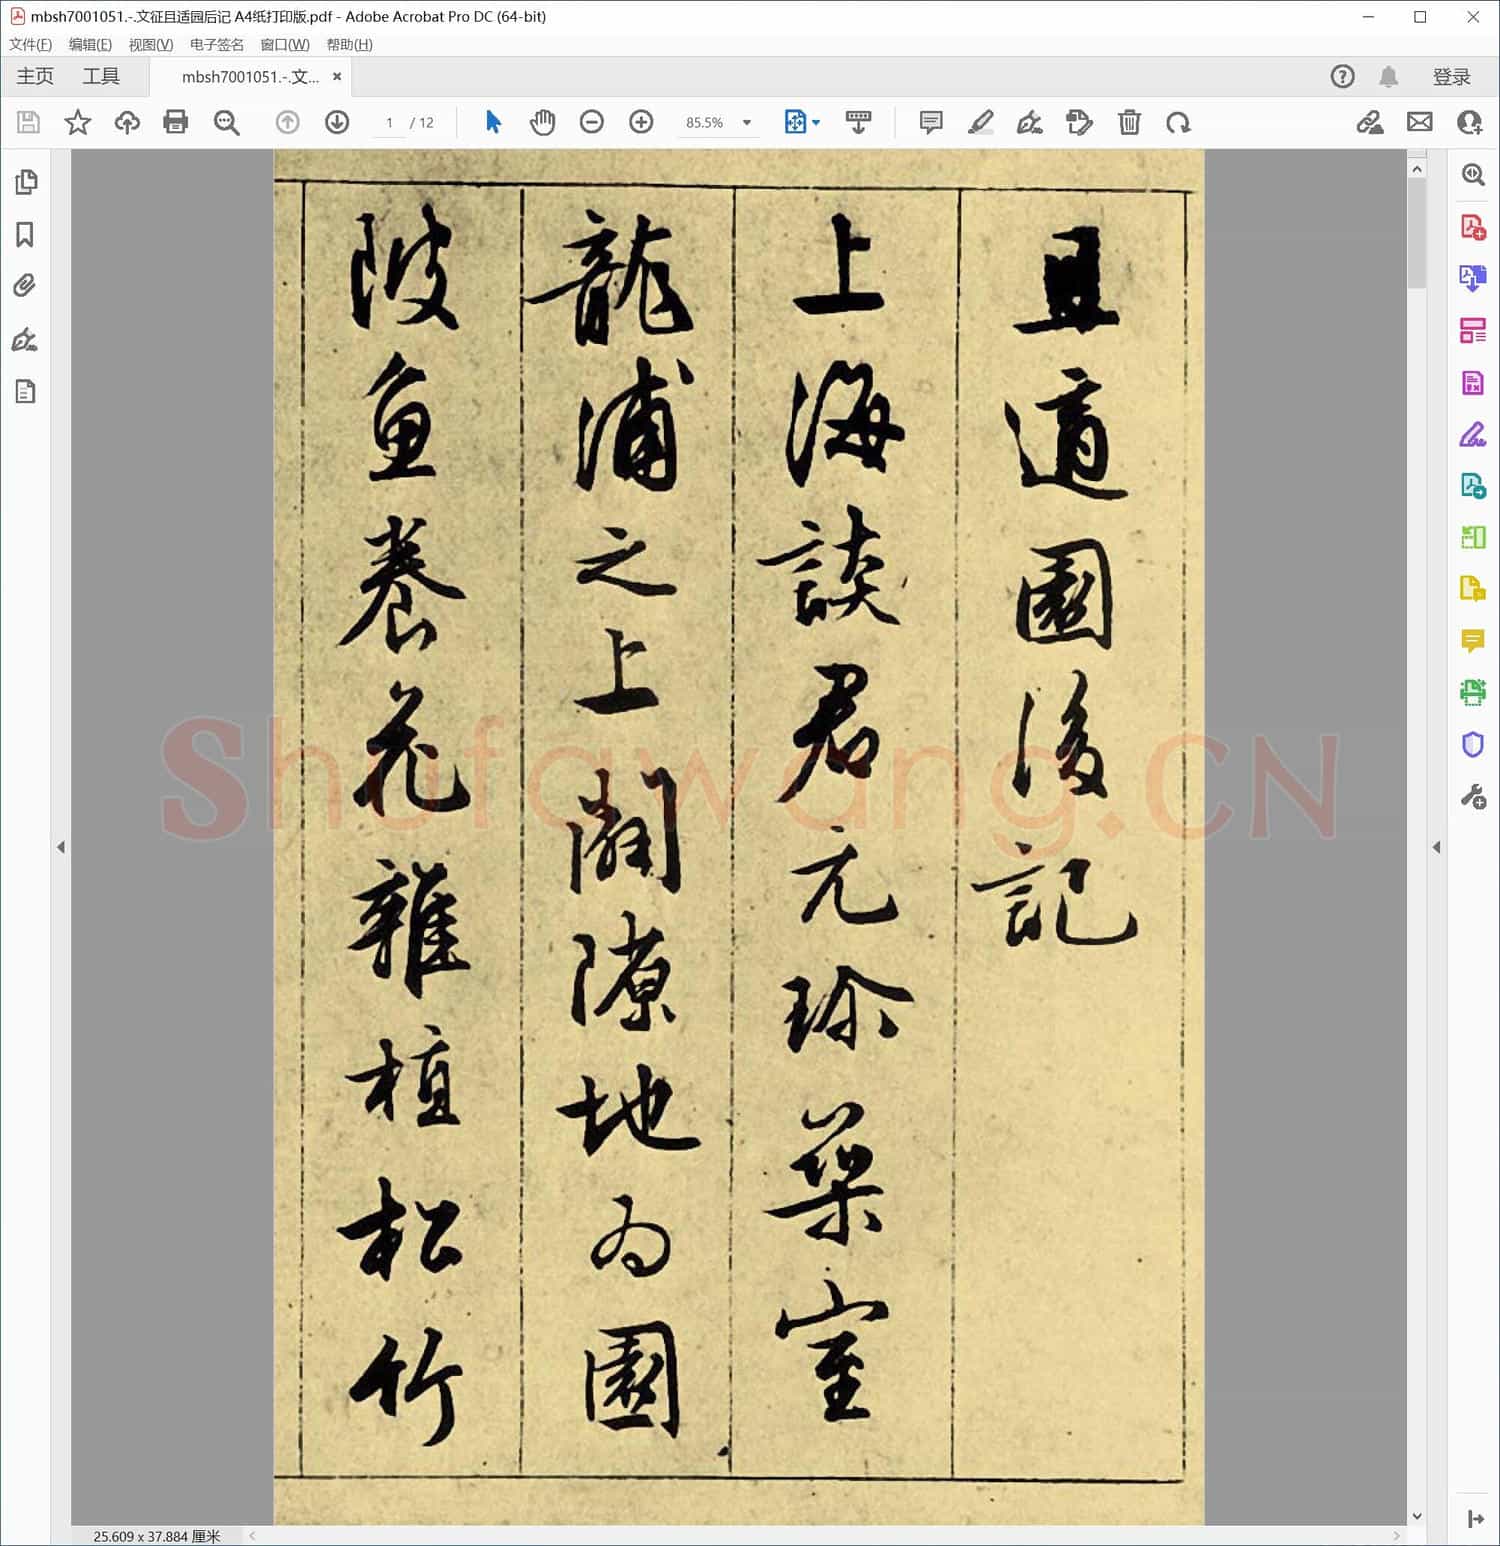 mbsh7001051.-.文征且适园后记 A4纸打印版.pdf - Adobe Acrobat Pro DC (64-bit)
文件(F) 编辑(E) 视图(V) 电子签名 窗口(W) 帮助(H)
主页 工具 mbsh7001051.-.文... × 登录
1 / 12 85.5%
且適園後記
上海談君元珍築室
龍浦之上闢隙地為園
陂魚養花雜植松竹
Shufawang.CN
25.609 x 37.884 厘米